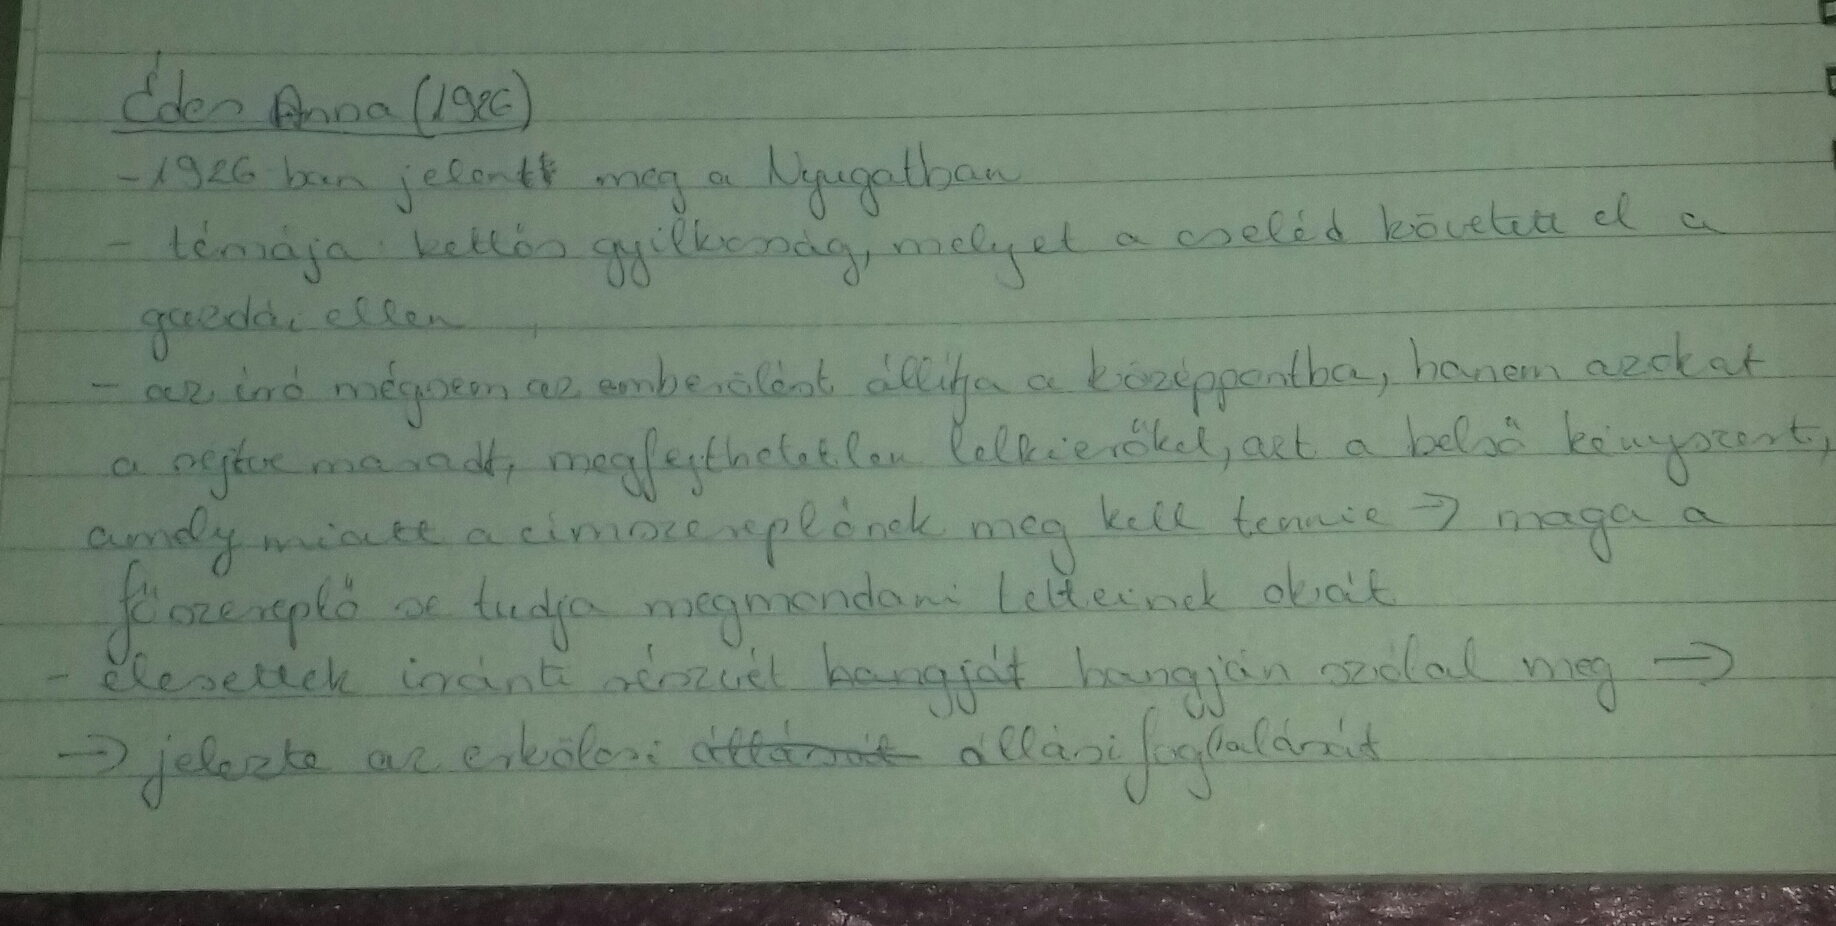 Édes Anna (1926)
- 1926 ban jelent meg a Nyugatban
- témája: kettős gyilkosság, melyet a cseléd követett el a
gazdái ellen
- az író mégsem az emberölést állítja a középpontba, hanem azokat
a rejtve maradt, megfejthetetlen lelkierőket, azt a belső kényszert,
amely miatt a címszereplőnek meg kell tennie → maga a
főszereplő se tudja megmondani tetteinek okait
- elesettek iránti részvét hangját hangján szólal meg →
→ jelezte az erkölcsi állását állásfoglalását